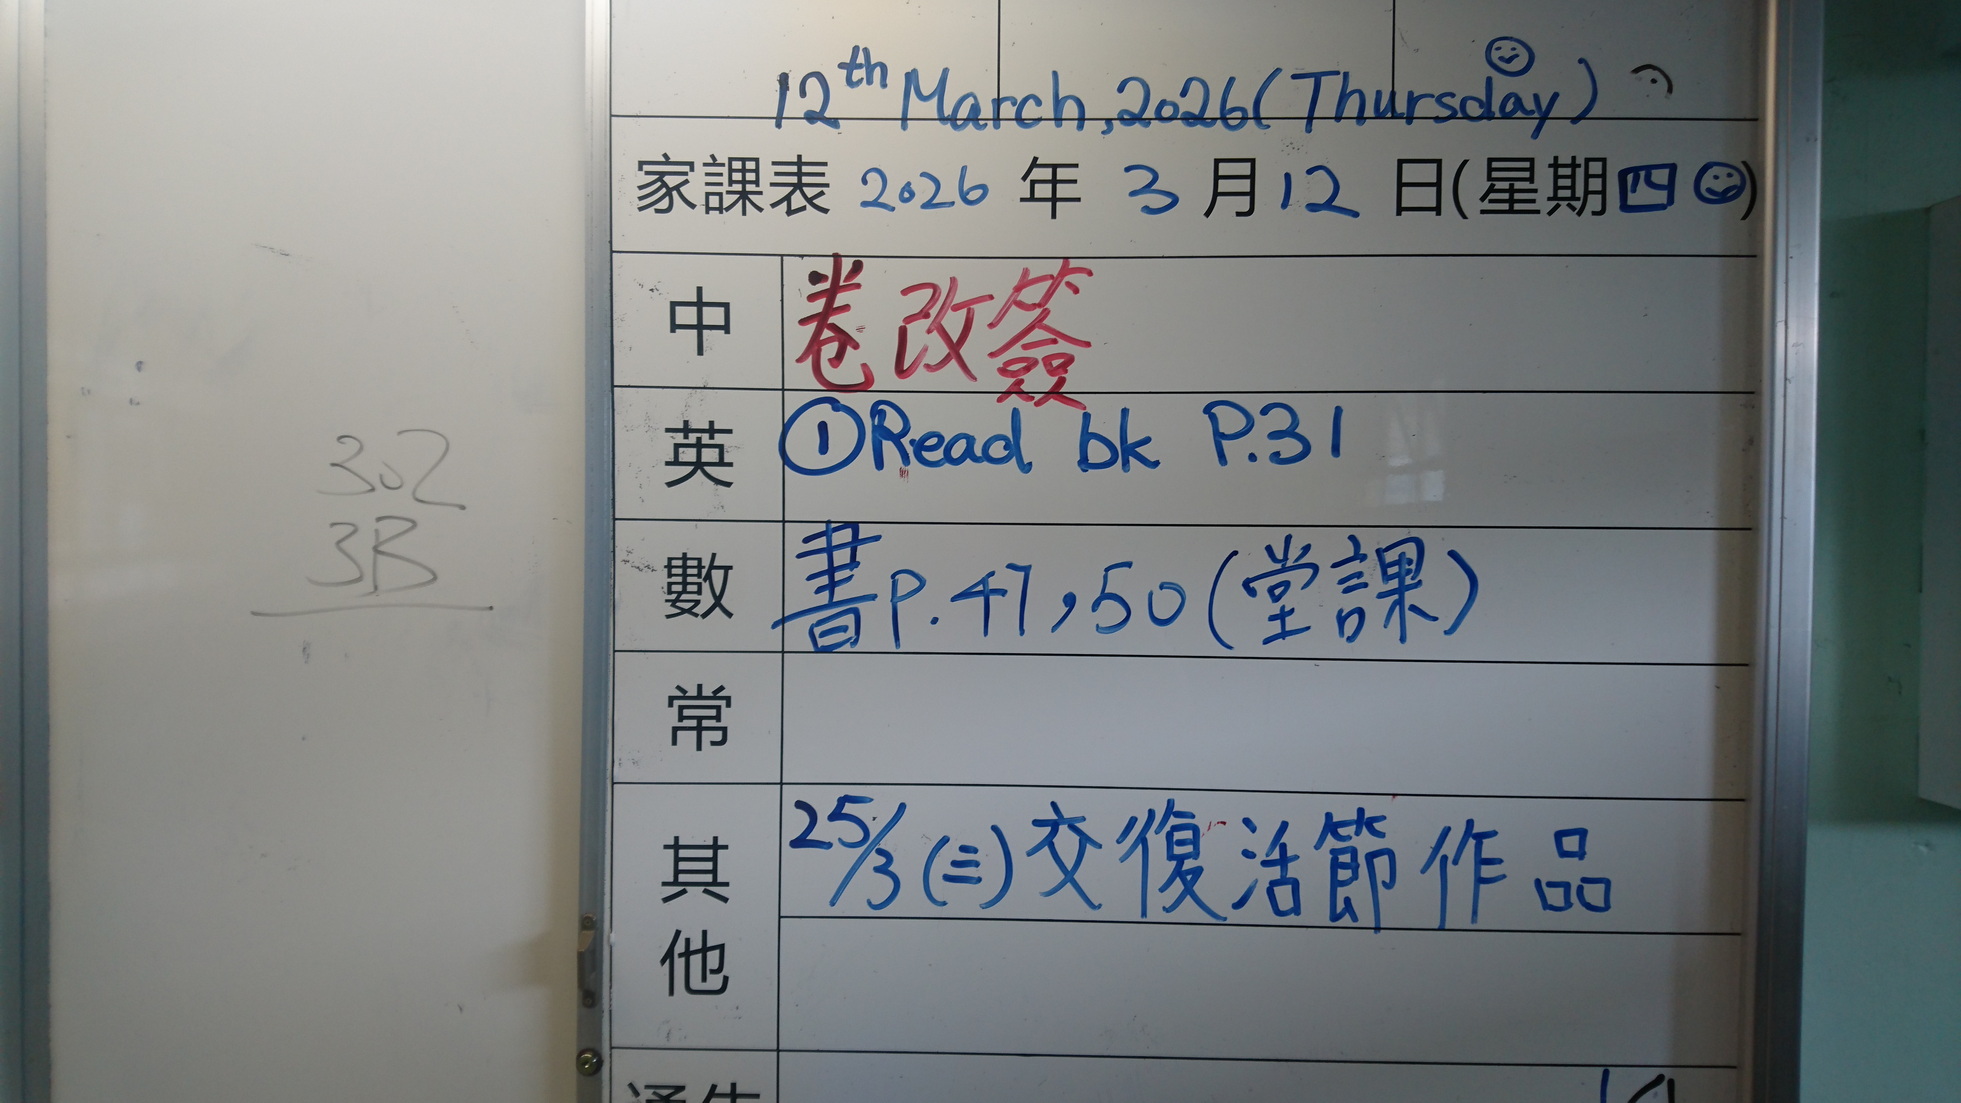 12th March, 2026 (Thursday)
家課表 2026 年 3 月 12 日(星期四)
中 卷改簽
英 ①Read bk P.31
數 書P.47,50(堂課)
常
其他 25/3(三)交復活節作品
302
3B